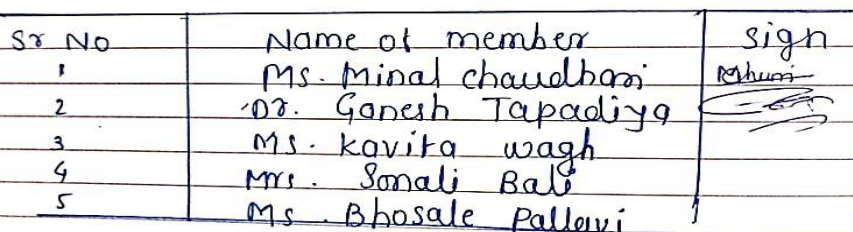 Sr No Name of member sign
1 Ms. Minal chaudhari
2 Dr. Ganesh Tapadiya
3 Ms. Kavita wagh
4 Mrs. Sonali Bali
5 Ms. Bhosale Pallavi